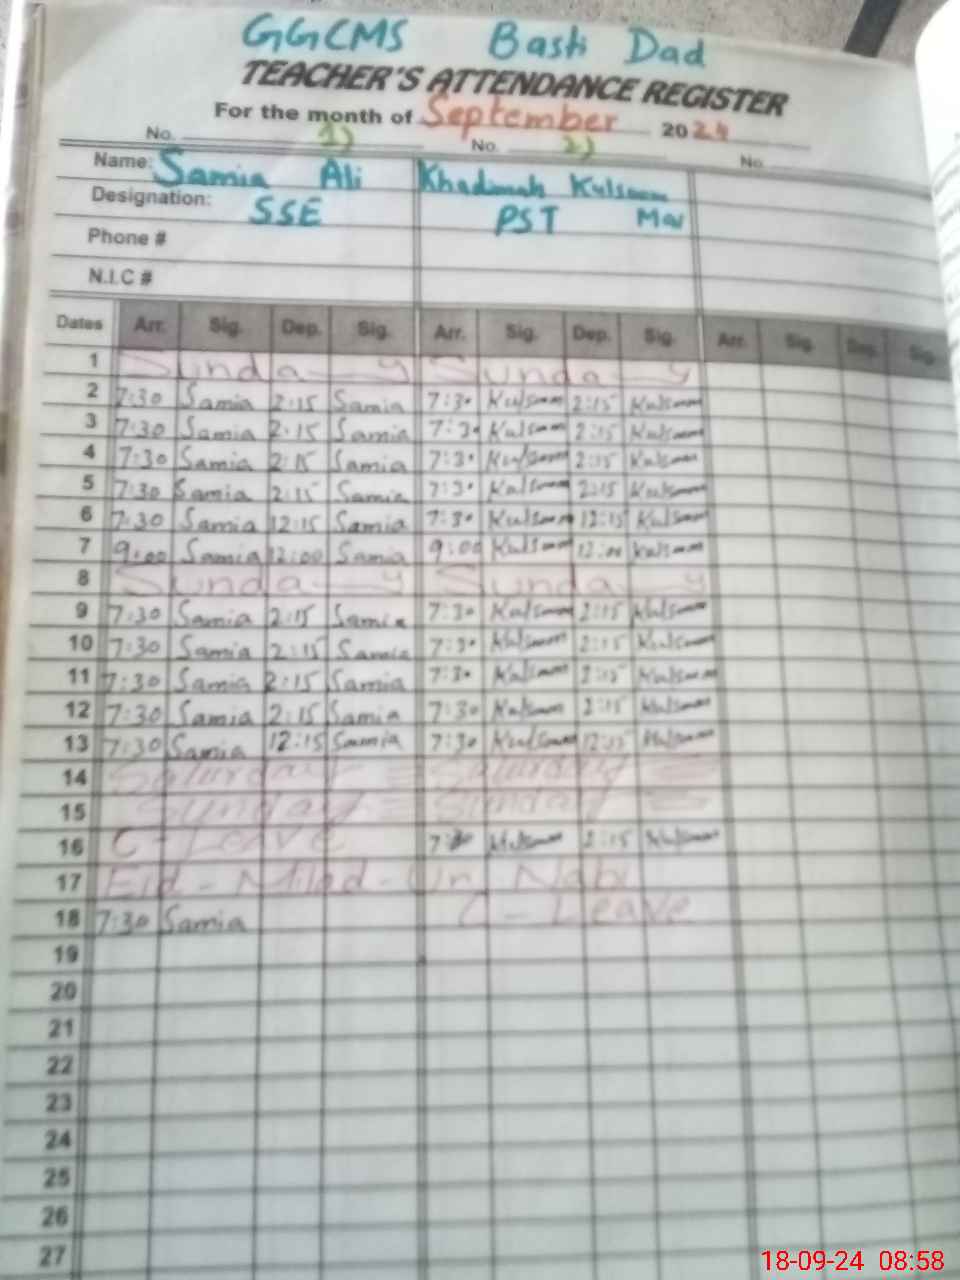 GGCMS Basti Dad
TEACHER'S ATTENDANCE REGISTER
For the month of September 2024
No. 1) No. 2) No.
Name: Samia Ali Khadimah Kulsoom
Designation: SSE PST
Phone #
N.I.C #
Dates Arr. Sig. Dep. Sig. Arr. Sig. Dep. Sig. Arr. Sig. Dep. Sig.
1 Sunda y Sunda y
2 7:30 Samia 2:15 Samia 7:30 Kulsoom 2:15 Kulsoom
3 7:30 Samia 2:15 Samia 7:30 Kulsoom 2:15 Kulsoom
4 7:30 Samia 2:15 Samia 7:30 Kulsoom 2:15 Kulsoom
5 7:30 Samia 2:15 Samia 7:30 Kulsoom 2:15 Kulsoom
6 7:30 Samia 12:15 Samia 7:30 Kulsoom 12:15 Kulsoom
7 9:00 Samia 12:00 Samia 9:00 Kulsoom 12:00 Kulsoom
8 Sunda y Sunda y
9 7:30 Samia 2:15 Samia 7:30 Kulsoom 2:15 Kulsoom
10 7:30 Samia 2:15 Samia 7:30 Kulsoom 2:15 Kulsoom
11 7:30 Samia 2:15 Samia 7:30 Kulsoom 2:15 Kulsoom
12 7:30 Samia 2:15 Samia 7:30 Kulsoom 2:15 Kulsoom
13 7:30 Samia 12:15 Samia 7:30 Kulsoom 12:15 Kulsoom
14 Saturday Saturday
15 Sunday Sunday
16 C-Leave 7:30 Kulsoom 2:15 Kulsoom
17 Eid-Milad-Un Nabi
18 7:30 Samia C-Leave
19
20
21
22
23
24
25
26
27
18-09-24 08:58